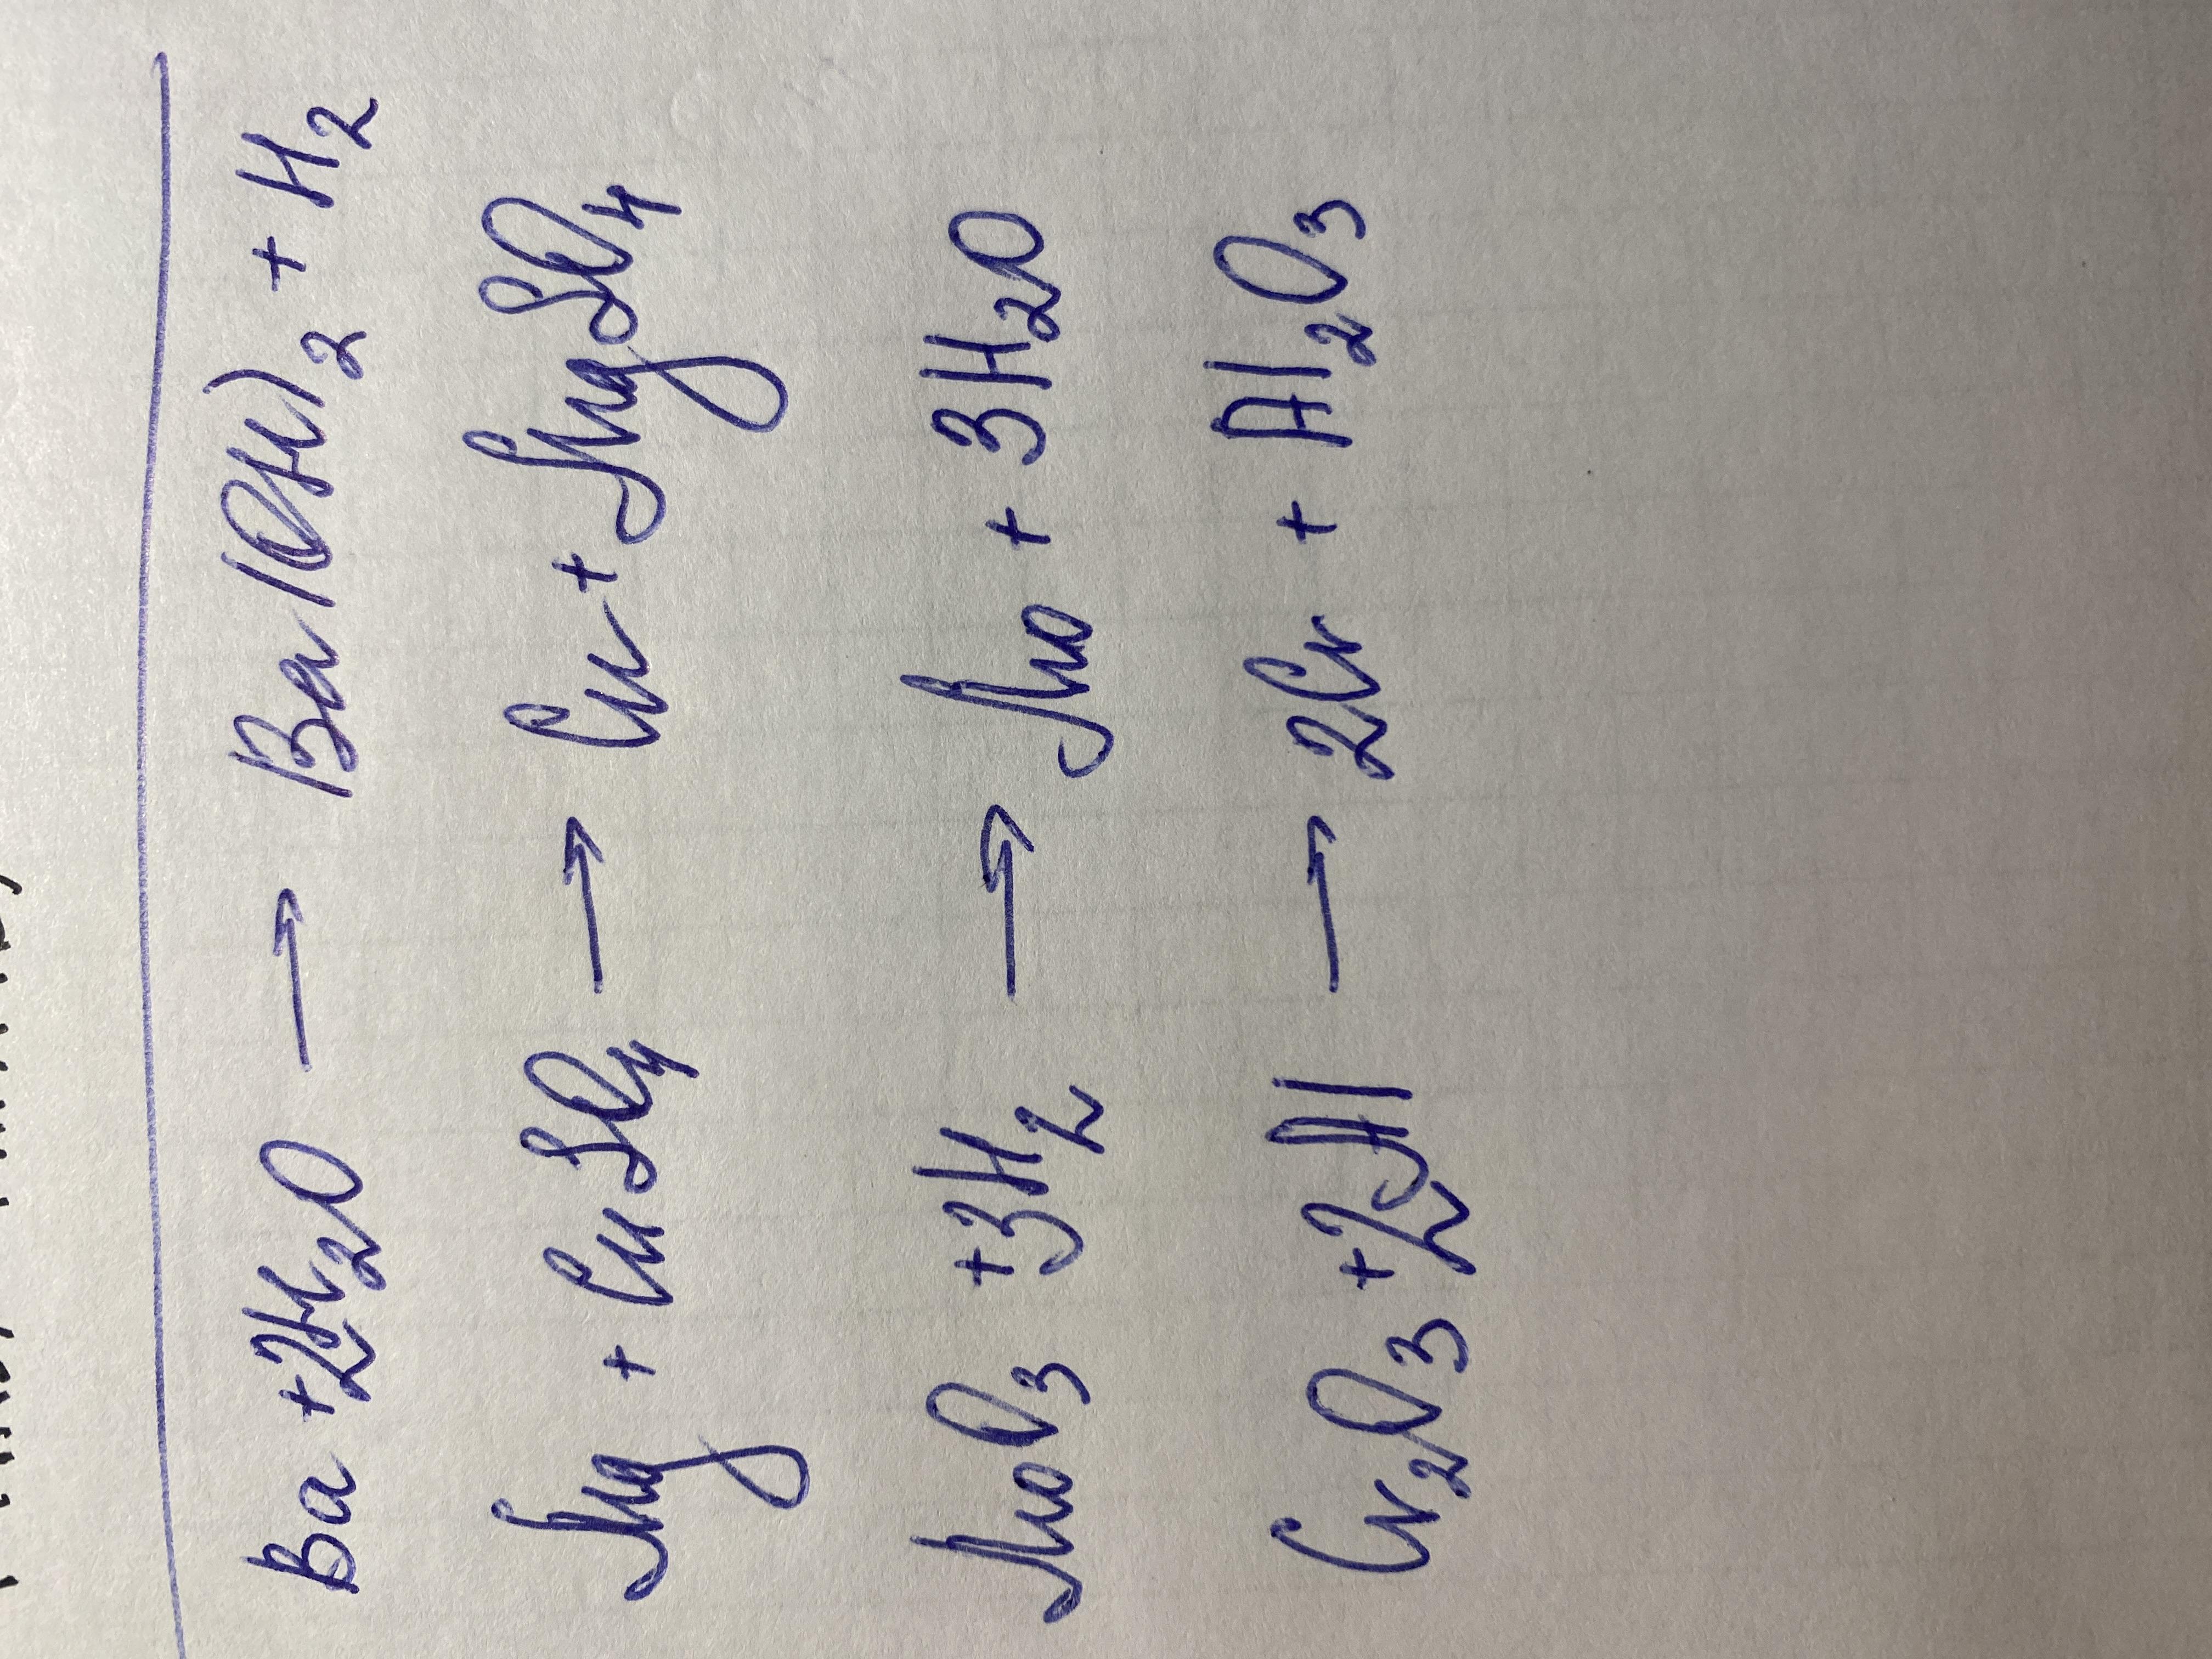 Ba + 2H₂O → Ba(OH)₂ + H₂
Mg + CuSO₄ → Cu + MgSO₄
MoO₃ + 3H₂ → Mo + 3H₂O
Cr₂O₃ + 2Al → 2Cr + Al₂O₃